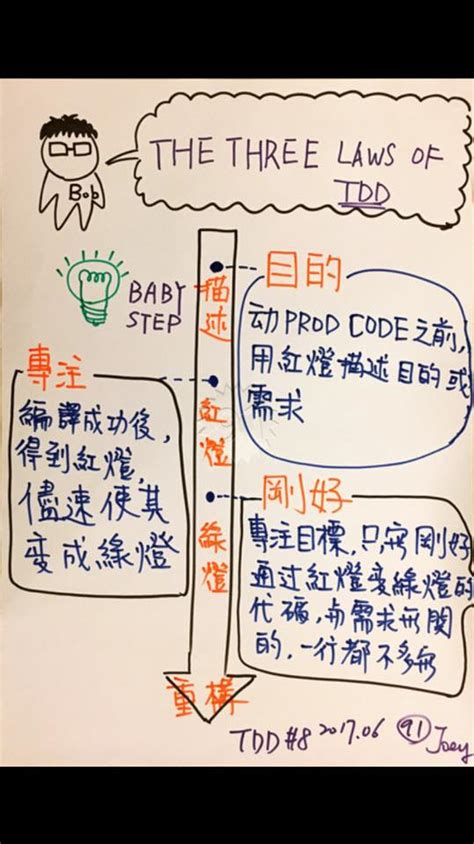 THE THREE LAWS OF
TDD
Bob
BABY
STEP
描述
目的
动PROD CODE之前,
用紅燈描述目的或
需求
專注
編譯成功後,
得到紅燈,
儘速使其
变成綠燈
紅燈
剛好
專注目標,只寫剛好
通过紅燈变綠燈的
代碼,与需求無関
的,一行都不多寫
綠燈
重構
TDD#8 2017.06 91 Joey